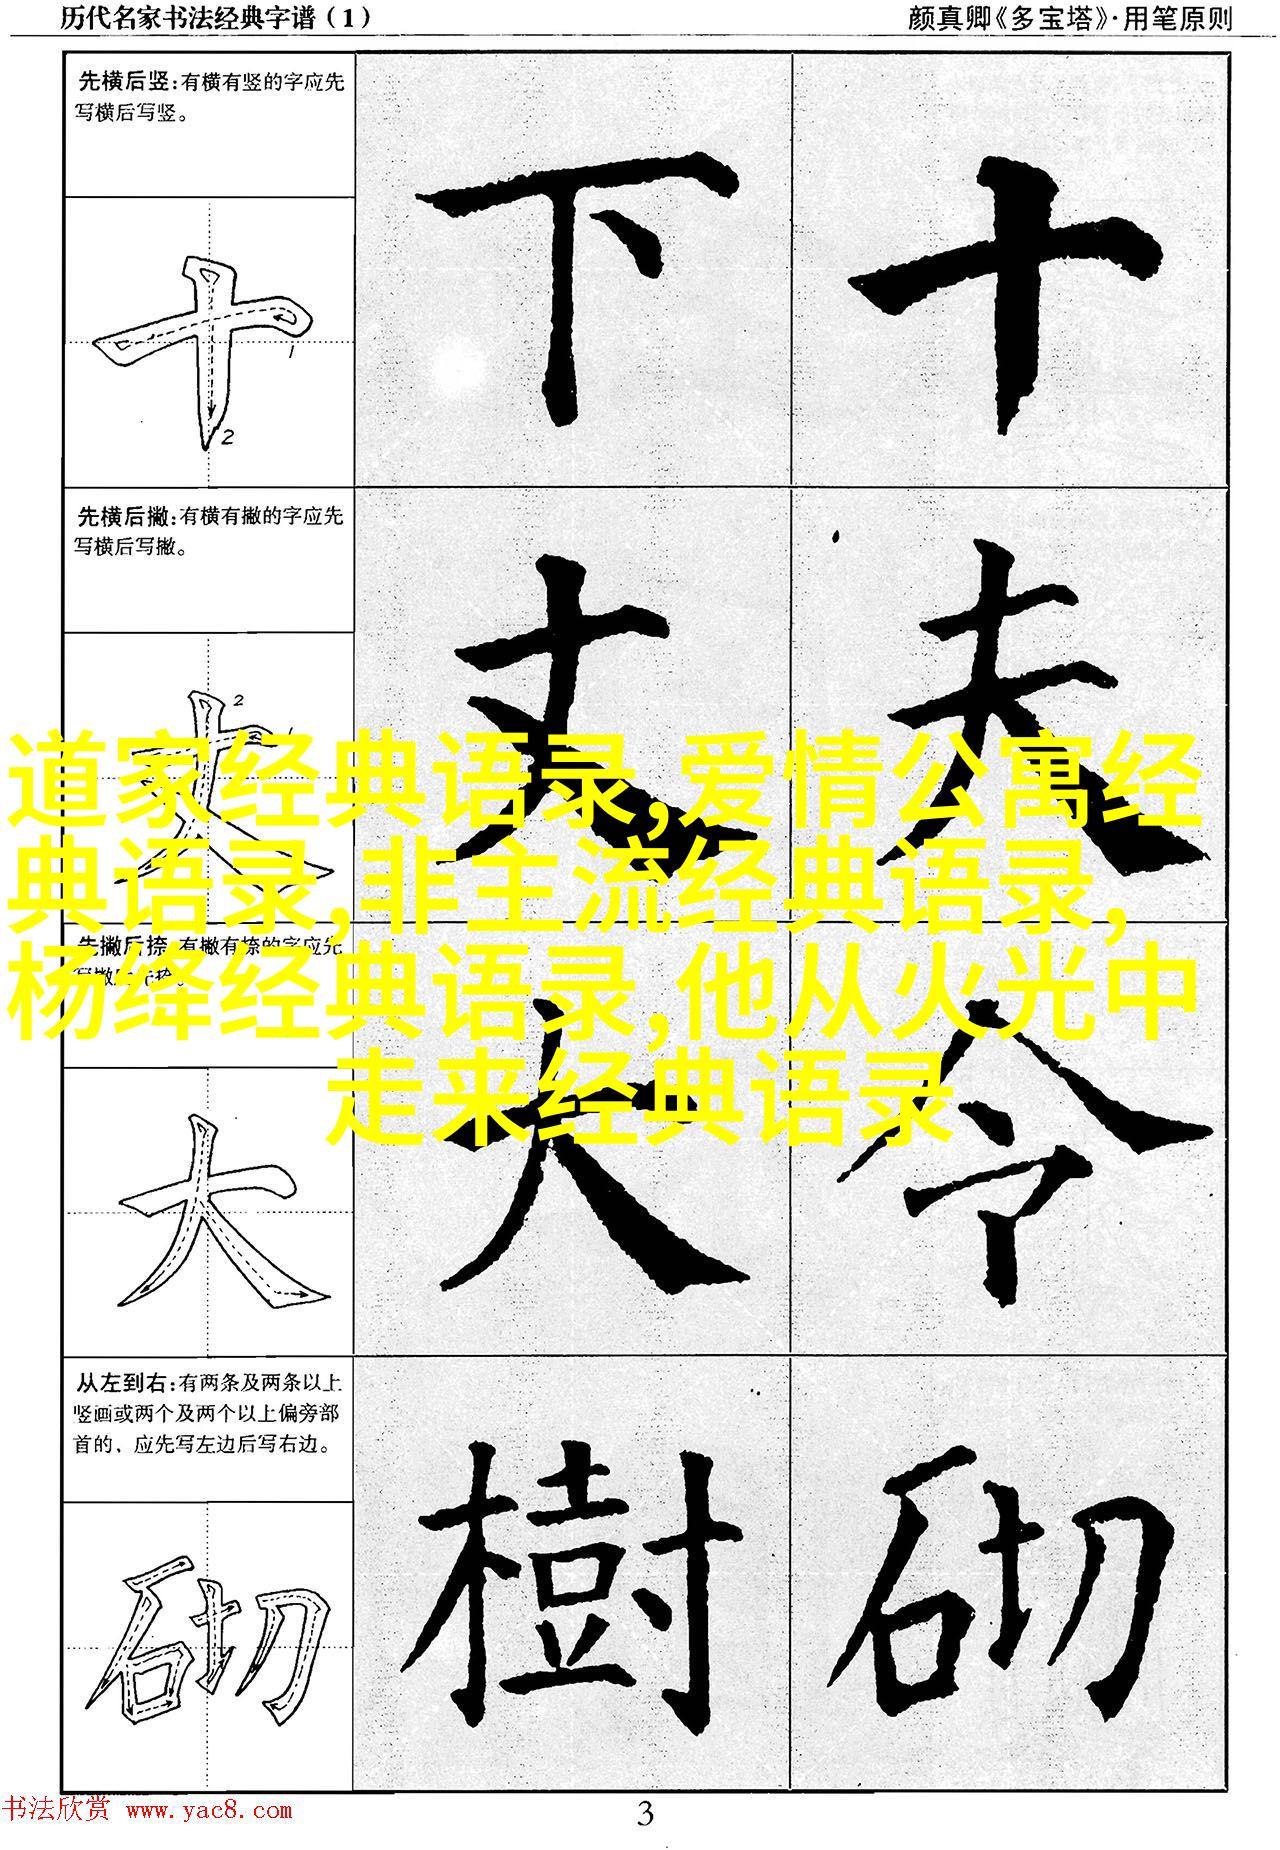 历代名家书法经典字谱（1）
颜真卿《多宝塔》·用笔原则
先横后竖：有横有竖的字应先
写横后写竖。
下 十
1
2
先横后撇：有横有撇的字应先
写横后写撇。
丈 夫
2
1
道家经典语录,爱情公寓经
典语录,非主流经典语录,
杨绛经典语录,他从火光中
走来经典语录
先撇后捺：有撇有捺的字应先
大 令
大
从左到右：有两条及两条以上
竖画或两个及两个以上偏旁部
首的，应先写左边后写右边。
樹 砌
砌
书法欣赏 www.yac8.com
3